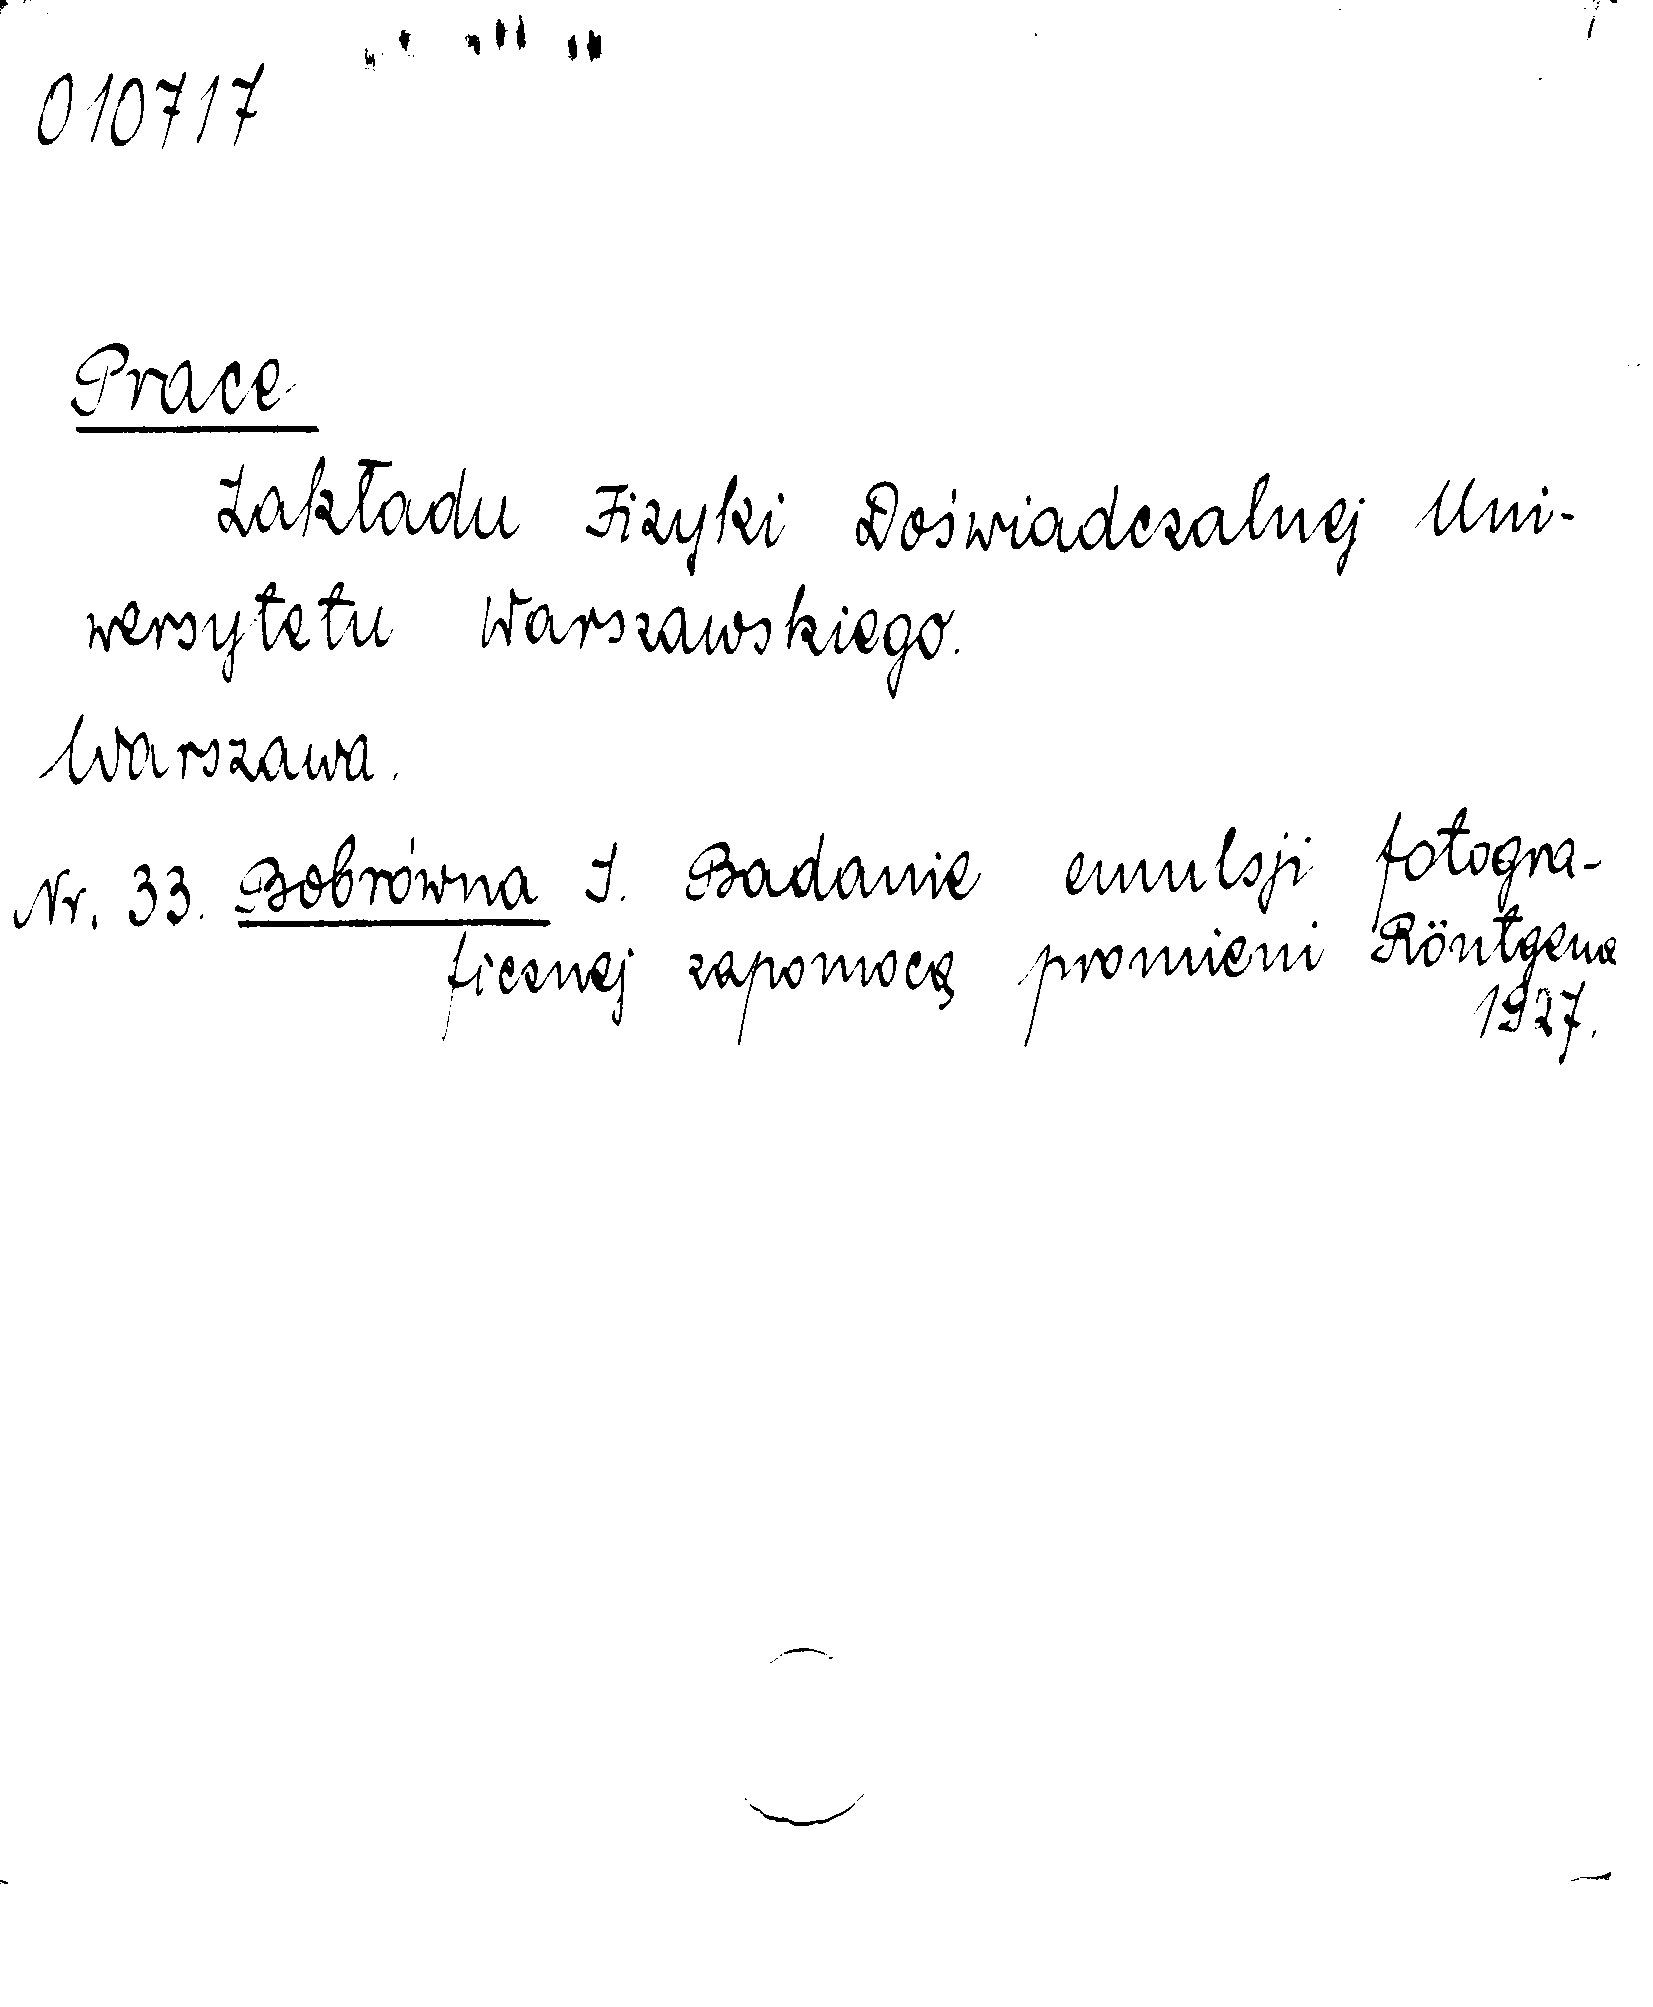 010717
Prace
Zakładu Fizyki Doświadczalnej Uni-
wersytetu Warszawskiego.
Warszawa.
Nr. 33. Bobrówna I. Badanie emulsji fotogra-
ficznej zapomocą promieni Röntgena
1927.